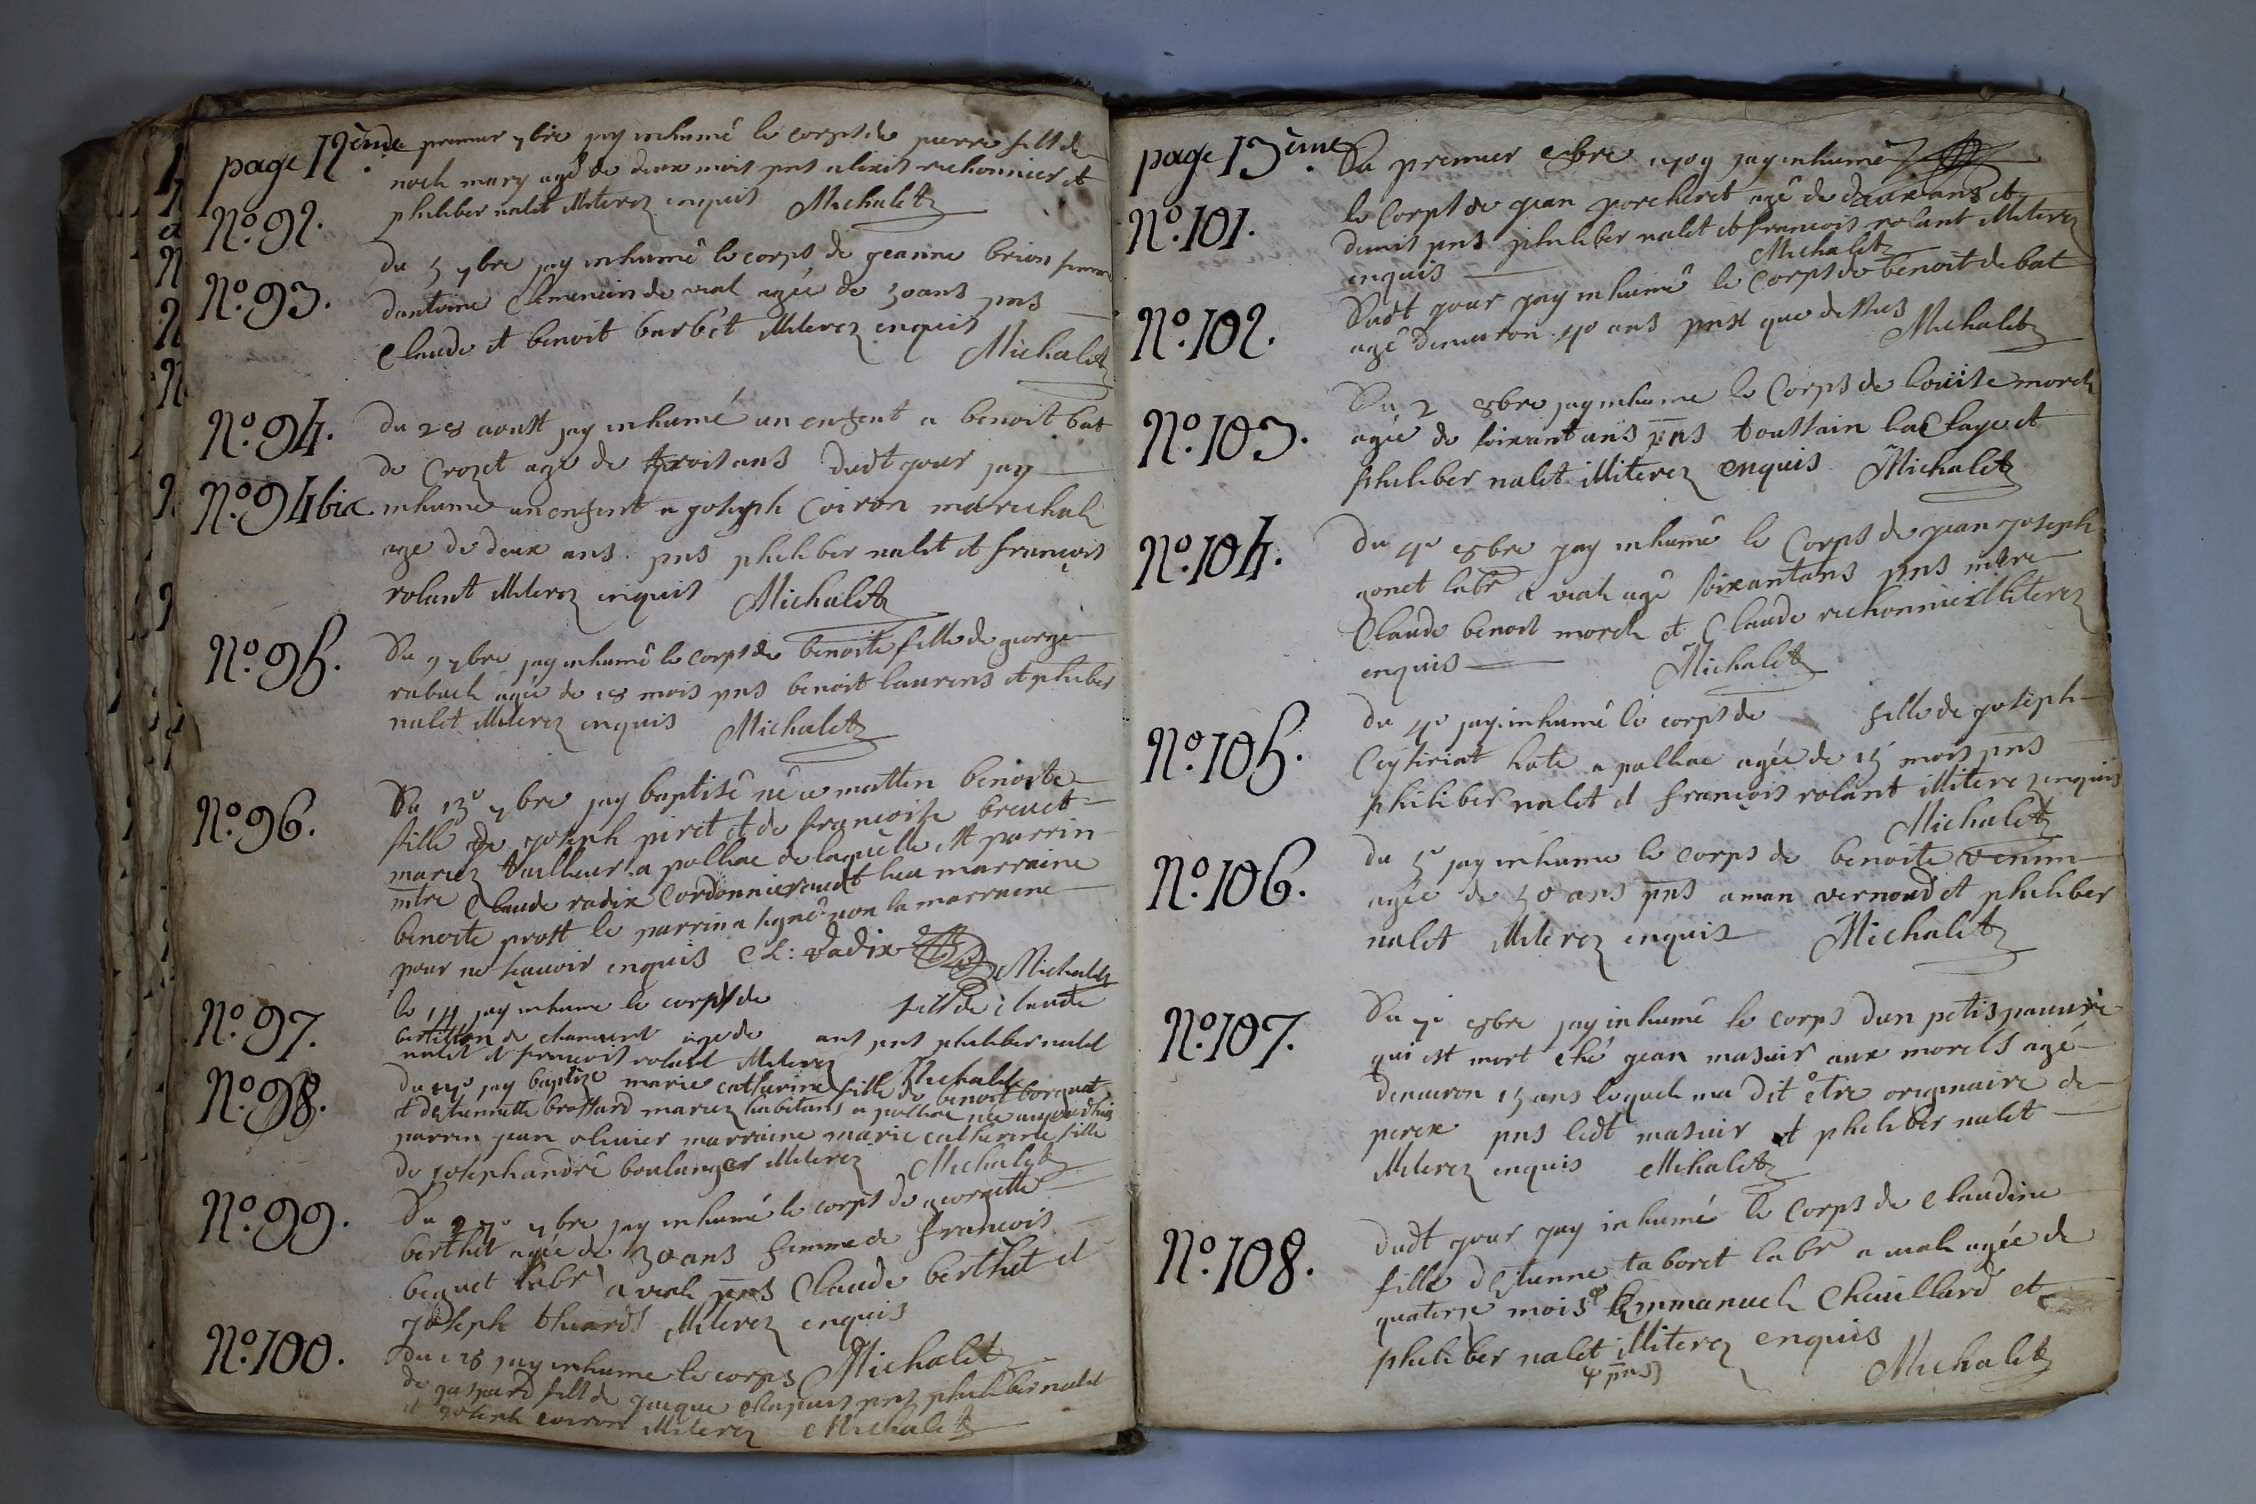 page 12ème
du premier 7bre jay inhumé le corps de pierre fils de
noel mary agé de deux mois pns alexis richonnier et
N.º 92.
philiber nalet illiterez enquis Michalet
N.º 93.
du 5 7bre jay inhumé le corps de jeanne brion femme
dantoine Clemencin de vial agée de 50 ans pns
Claude et benoit barbet illiterez enquis
Michalet
N.º 94.
du 28 aoust jay inhumé un enfent a benoit bat
de Crozet age de trois ans dudt jour jay
N.º 94 bis
inhume un enfent a joseph Coiron marichal
age de deux ans. pns philiber nalet et françois
rolant illiterez enquis Michalet
N.º 95.
Du 9 7bre jay inhumé le corps de benoite fille de george
rabuel agée de 18 mois pns benoit laurens et philiber
nalet illiterez enquis Michalet
N.º 96.
Du 13e 7bre jay baptisé née a mattin benoite
fille de joseph piret et de françoise brevet
mariez tailleur a polliac de laquelle est parrin
mtre Claude radix Cordonnier audt lieu marraine
benoite prost le parrin a signé non la marraine
pour ne sçavoir enquis Cl: radix Michalet
N.º 97.
le 14 jay inhume le corps de fils de claude
de age de ans pns philiber nalet
nalet et françois rolant illiterez
Michalet
N.º 98.
du jay baptize marie catherine fille de benoit
et destiennette brossard mariez habitans a polliac née aujourdhui
parrin jean olivier marraine marie catherine fille
de joseph andré boulanger illiterez Michalet
N.º 99.
Du 27e 7bre jay inhumé le corps de georgette
berthet agée de 30 ans femme de françois
beguet labr a vial pns Claude berthet et
joseph thuard illiterez enquis
Michalet
N.º 100.
du 28 jay inhume le corps
de gaspard fils de jacque chapuis pns philiber nalet
et joseph coiron illiterez Michalet
page 13ème
Du premier 8bre 1709 jay inhumé
N.º 101.
le Corps de jean porcheret agé de deux ans et
demis pns philiber nalet et francois rolant illiterez
enquis Michalet
N.º 102.
Dudt jour jay inhumé le Corps de benoit de bat
agé denviron 40 ans pnst que dessus Michalet
N.º 103.
Du 2 8bre jay inhume le Corps de louise morel
agée de soixant ans pns toussain la Claye et
philiber nalet illiterez enquis Michalet
N.º 104.
du 4e 8bre jay inhumé le Corps de jean joseph
gonet labr a vial agé soixantans pns mtre
Claude benoit morel et Claude richonnier illiterez
enquis Michalet
N.º 105.
du 4e jay inhumé le corps de fille de joseph
hote a polliac agée de 15 mois pns
philiber nalet et françois rolant illiterez enquis
Michalet
N.º 106.
du 5e jay inhume le corps de benoite
agée de 50 ans pns aman vernoud et philiber
nalet illiterez enquis Michalet
N.º 107.
Du 7e 8bre jay inhumé le corps dun petis pauvre
qui est mort ché jean masuir aux morels agé
denviron 15 ans lequel ma dit être originaire de
perex pns ledt masuir et philiber nalet
illiterez enquis Michalet
N.º 108.
dudt jour jay inhumé le Corps de Claudine
fille detienne taboret labr a vial agée de
quatorze mois Emmanuel Chavillard et
philiber nalet illiterez enquis
pns
Michalet